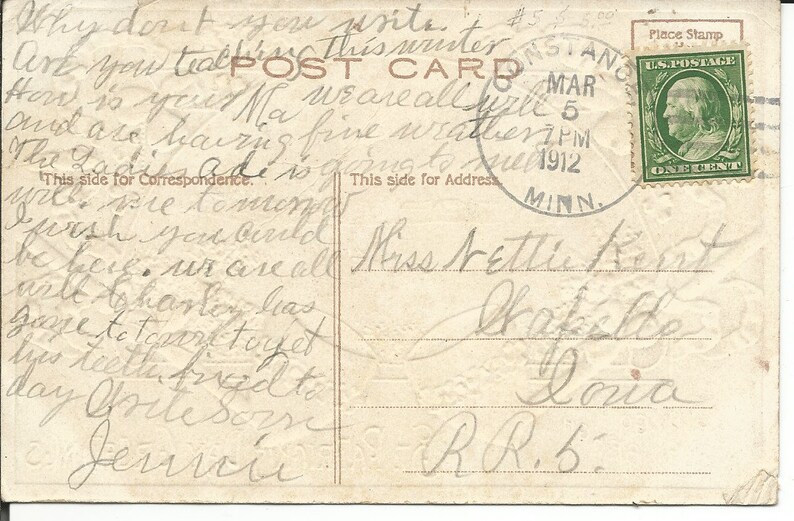 Why don't you write.
$5
5.00
Are you teaching this winter
Place Stamp
Here
POST CARD
How is your Ma we are all well
and are having fine weather
The Ladies Ade is going to meet
This side for Correspondence.
This side for Address.
with me tomorrow
I wish you could
be here. we are all
well Charley has
gone to town to get
his teeth fixed to
day Write Soon
Jennie
CONSTANCE
MAR
5
7 PM
1912
MINN.
U.S. POSTAGE
ONE CENT
Miss Nettie Kerst
Wapello
Iowa
R.R. 5.